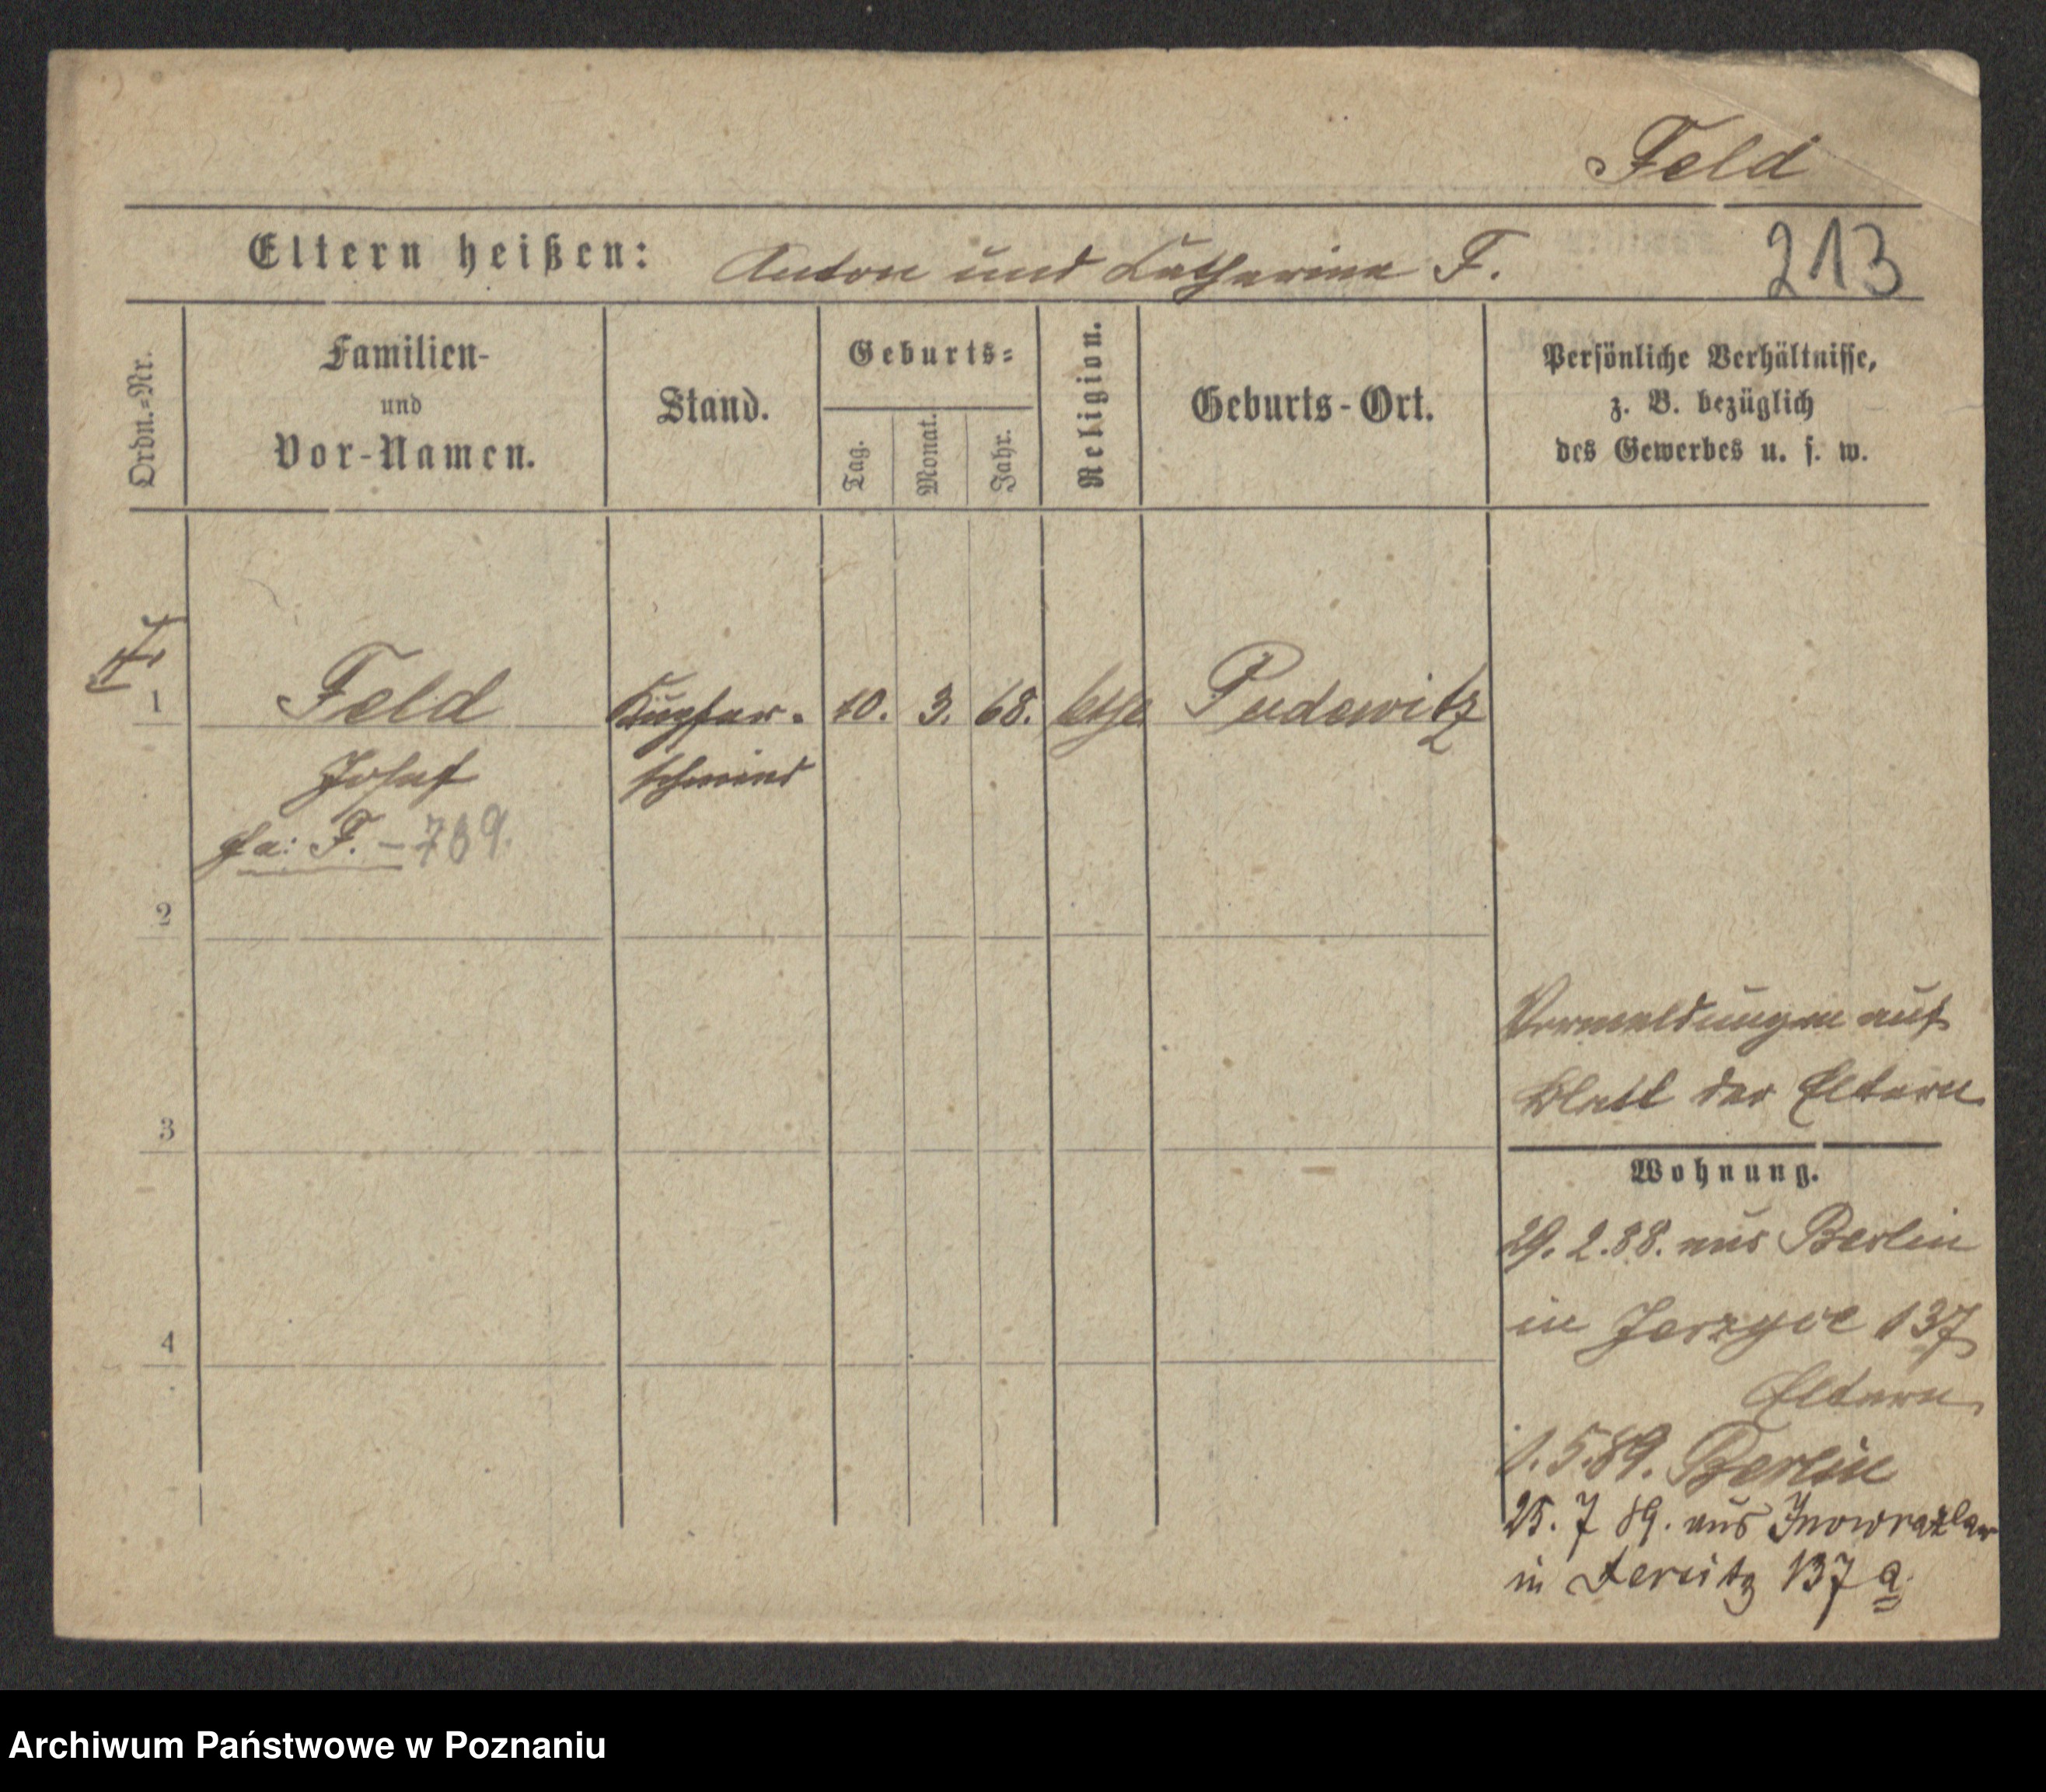 Feld
Eltern heißen: Anton und Katharina F.
213
Ordn.=Nr.
Familien-
und
Vor-Namen.
Stand.
Geburts=
Tag.
Monat.
Jahr.
Religion.
Geburts-Ort.
Persönliche Verhältnisse,
z. B. bezüglich
des Gewerbes u. s. w.
1 Feld Kupfer- 10. 3. 68. kth Pudewitz
Josef schmied
F. - 789.
2
3
4
Vermeldungen auf
Blatt der Eltern
Wohnung.
29. 2. 88. aus Berlin
in Jerzyce 137
Eltern
1. 5. 89. Berlin
25. 7 89. aus Inowrazlaw
in Jersitz 137 a.
Archiwum Państwowe w Poznaniu